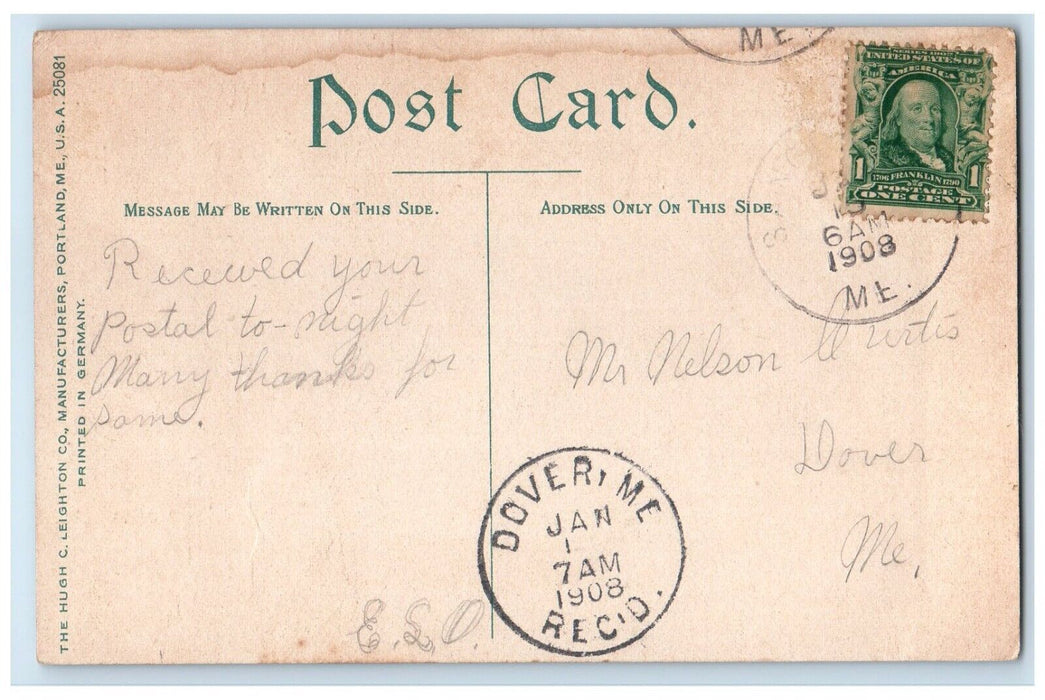 THE HUGH C. LEIGHTON CO., MANUFACTURERS, PORTLAND, ME., U.S.A. 25081
PRINTED IN GERMANY.
Post Card.
MESSAGE MAY BE WRITTEN ON THIS SIDE.
ADDRESS ONLY ON THIS SIDE.
ME
UNITED STATES OF
AMERICA
1706 FRANKLIN 1790
1 1
POSTAGE
ONE CENT
6 AM
1908
ME.
Received your
Postal to-night
Many thanks for
same.
E.L.O.
Mr Nelson Curtis
Dover
Me,
DOVER, ME
JAN
1
7 AM
1908
REC'D.